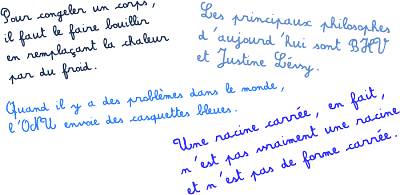 Pour congeler un corps,
il faut le faire bouillir
en remplaçant la chaleur
par du froid.
Les principaux philosophes
d'aujourd'hui sont BHV
et Justine Lévy.
Quand il y a des problèmes dans le monde,
l'ONU envoie des casquettes bleues.
Une racine carrée, en fait,
n'est pas vraiment une racine
et n'est pas de forme carrée.